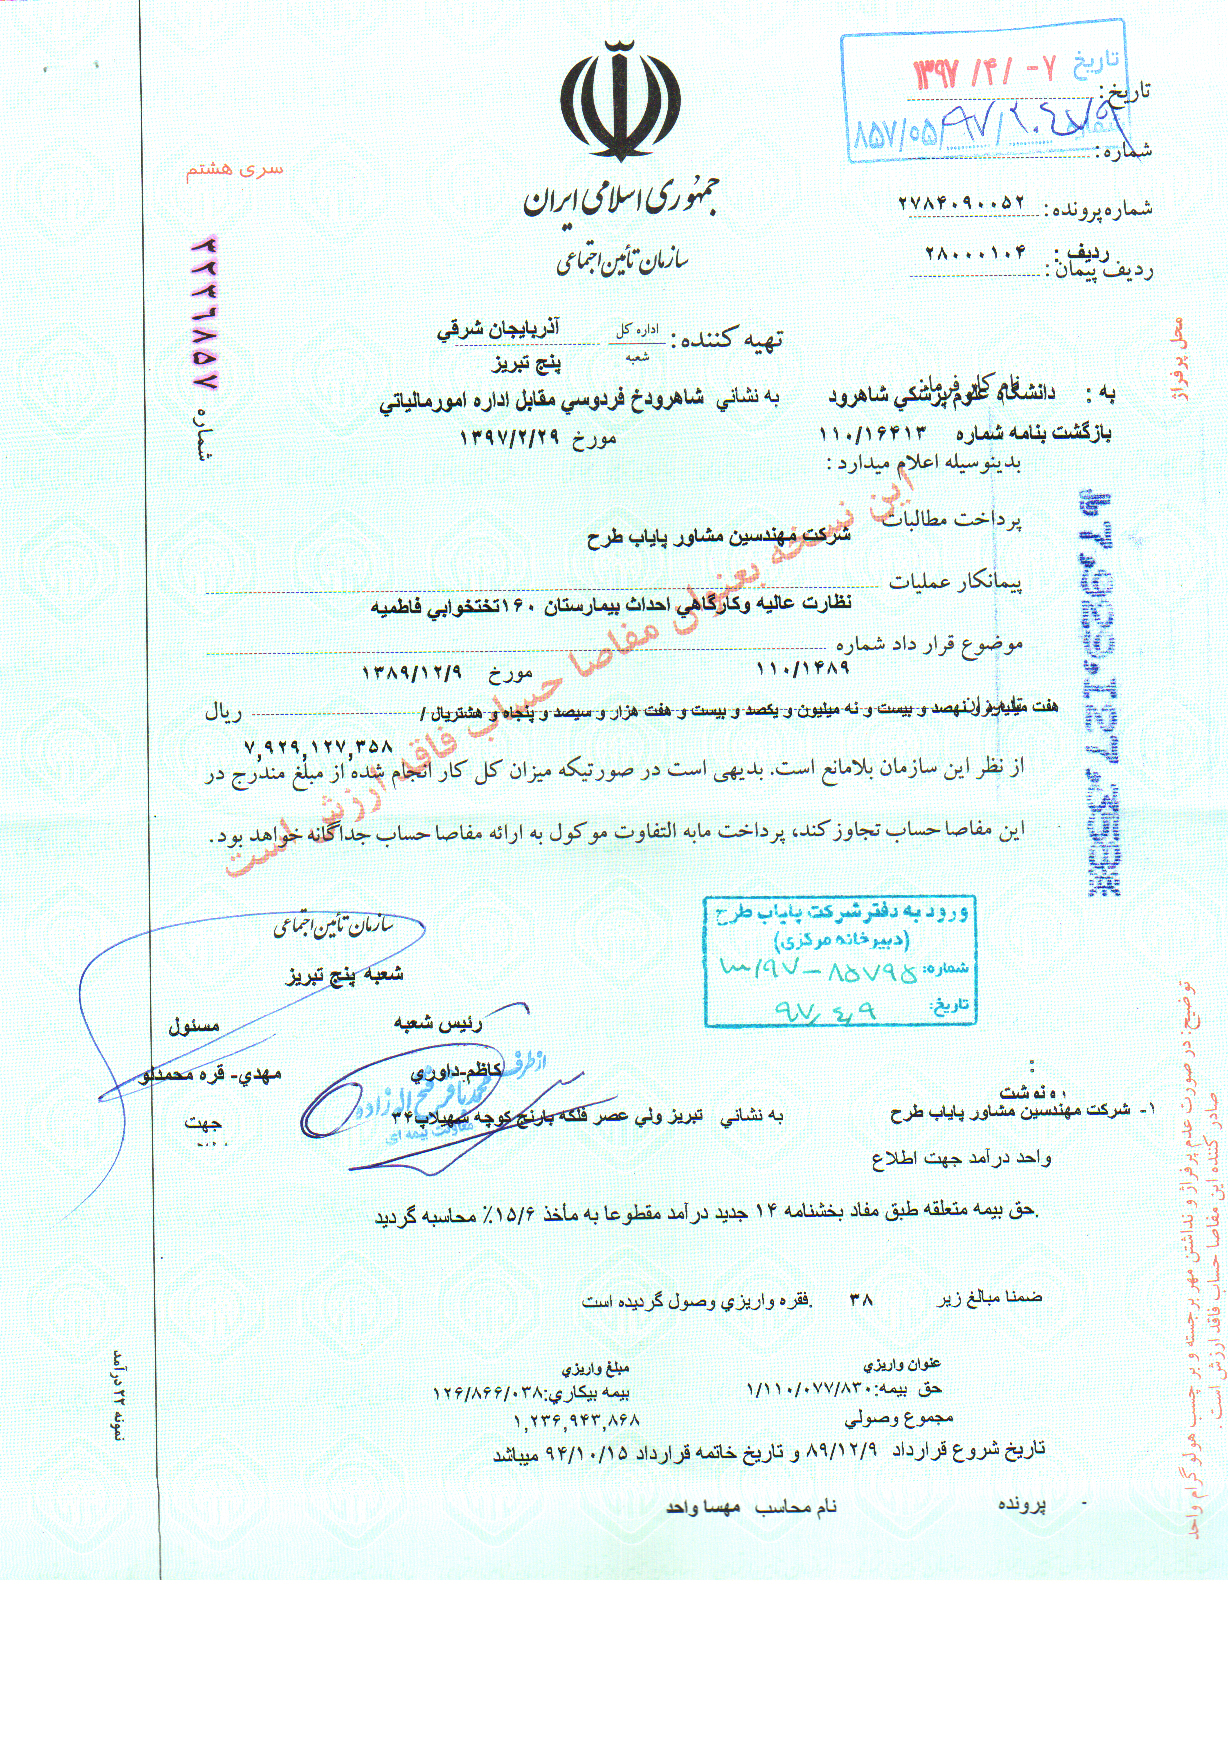 تاریخ ۷- /۴/ ۱۳۹۷
تاریخ :
۸۵۷/۰۵/۹۷/
شماره :
جمهوری اسلامی ایران
سازمان تأمین اجتماعی
سری هشتم
شماره پرونده : ۲۷۸۴۰۹۰۰۵۲
ردیف : ۲۸۰۰۰۱۰۴
ردیف پیمان :
شماره ۳۲۳۶۸۵۷
تهیه کننده : اداره کل آذربایجان شرقي
شعبه پنج تبریز
نام کارفرما
به : دانشگاه علوم پزشکي شاهرود به نشاني شاهرودخ فردوسي مقابل اداره امورمالیاتي
بازگشت بنامه شماره ۱۱۰/۱۶۴۱۳ مورخ ۱۳۹۷/۲/۲۹
بدینوسیله اعلام میدارد :
پرداخت مطالبات
شرکت مهندسین مشاور پایاب طرح
پیمانکار عملیات
نظارت عالیه وکارگاهي احداث بیمارستان ۱۶۰تختخوابي فاطمیه
موضوع قرار داد شماره
۱۱۰/۱۴۸۹ مورخ ۱۳۸۹/۱۲/۹
تا میزان
هفت میلیارد و نهصد و بیست و نه میلیون و یکصد و بیست و هفت هزار و سیصد و پنجاه و هشتریال / ریال
۷,۹۲۹,۱۲۷,۳۵۸
از نظر این سازمان بلامانع است. بدیهی است در صورتیکه میزان کل کار انجام شده از مبلغ مندرج در
این مفاصا حساب تجاوز کند، پرداخت مابه التفاوت موکول به ارائه مفاصا حساب جداگانه خواهد بود.
این نسخه بعنوان مفاصا حساب فاقد ارزش است
محل پرفراژ
7,929,127,358
ورود به دفتر شرکت پایاب طرح
(دبیرخانه مرکزی)
شماره: ۸۵۷۹۵-۳/۹۷
تاریخ: ۹۷,۴,۹
سازمان تأمین اجتماعی
شعبه پنج تبریز
رئیس شعبه مسئول
کاظم-داوري مهدي- قره محمدلو
از طرف محمدباقر فتح اله زاده
معاونت بیمه ای
جهت
:
رونوشت
۱- شرکت مهندسین مشاور پایاب طرح به نشاني تبریز ولي عصر فلکه بارنج کوچه سهیلاپ۳۴
واحد درآمد جهت اطلاع
.حق بیمه متعلقه طبق مفاد بخشنامه ۱۴ جدید درآمد مقطوعا به مأخذ ۱۵/۶٪ محاسبه گردید
ضمنا مبالغ زیر ۳۸ .فقره واریزي وصول گردیده است
عنوان واریزي مبلغ واریزي
حق بیمه:۱/۱۱۰/۰۷۷/۸۳۰ بیمه بیکاري:۱۲۶/۸۶۶/۰۳۸
مجموع وصولي ۱,۲۳۶,۹۴۳,۸۶۸
تاریخ شروع قرارداد ۸۹/۱۲/۹ و تاریخ خاتمه قرارداد ۹۴/۱۰/۱۵ میباشد
- پرونده نام محاسب مهسا واحد
نمونه ۲۲ درآمد
توضیح : در صورت عدم پرفراژ و نداشتن مهر برجسته و بر چسب هولوگرام واحد
صادر کننده این مفاصا حساب فاقد ارزش است .